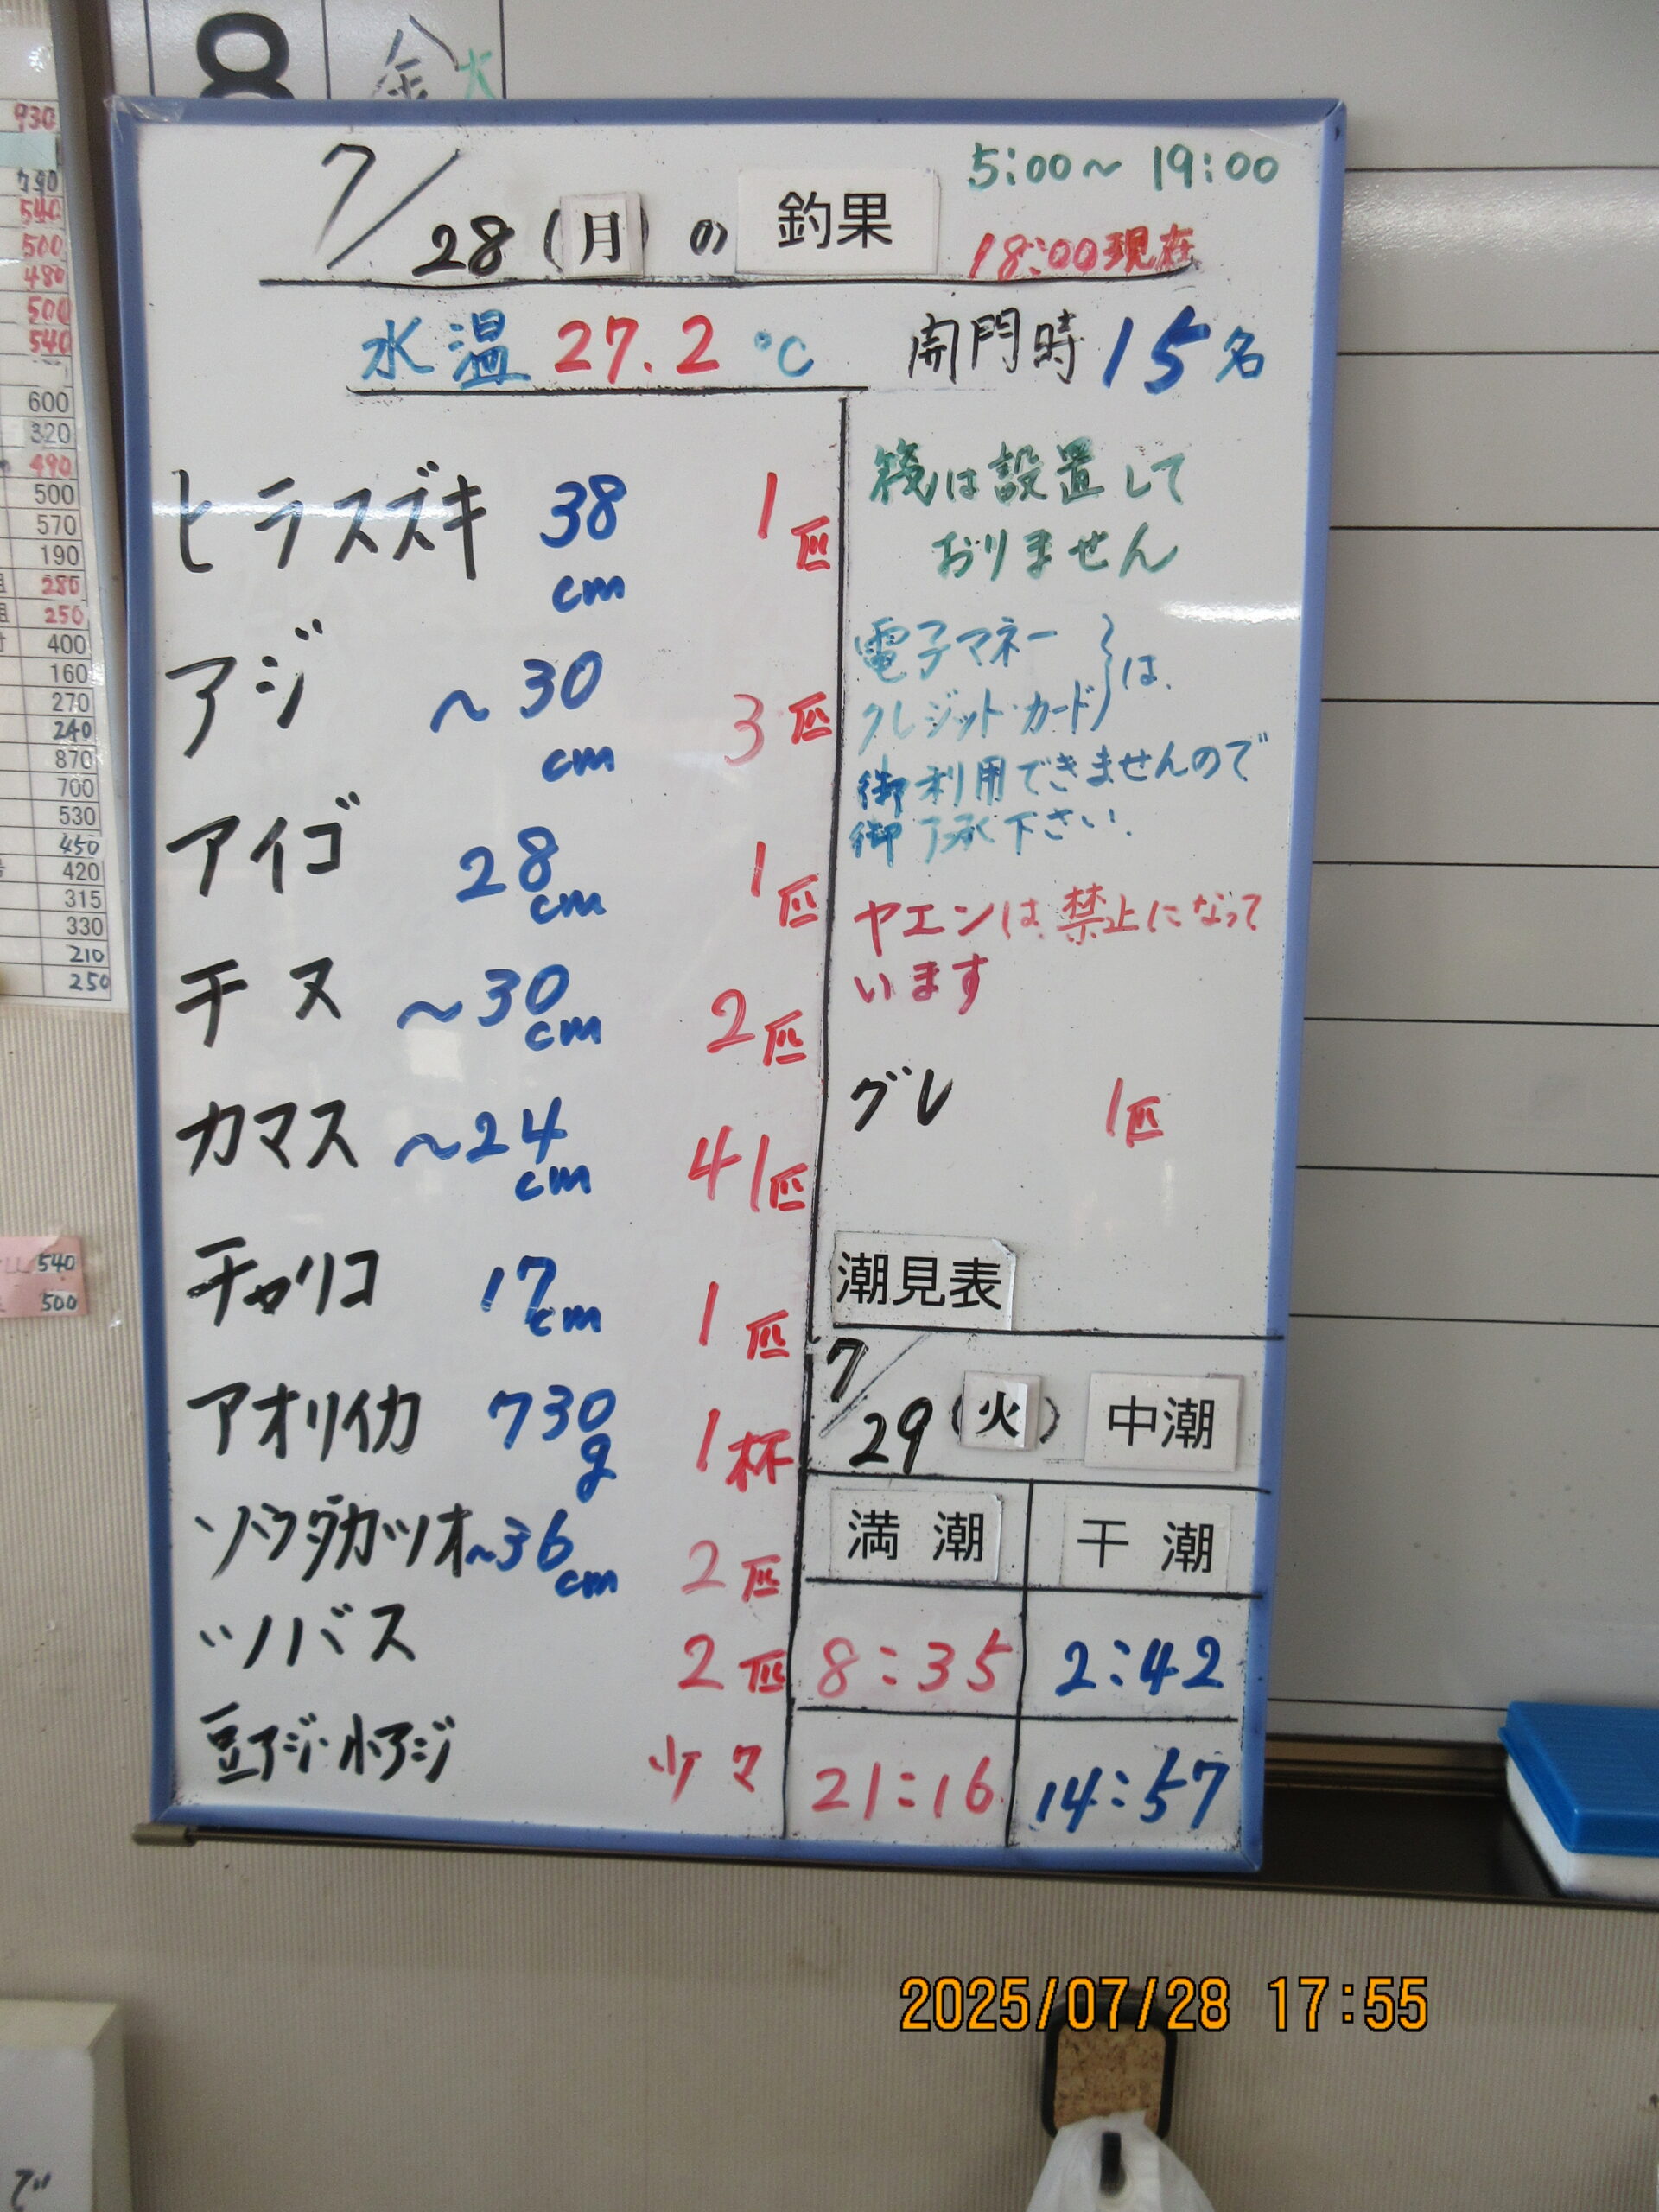 8
金
930
790
540
500
480
500
540
600
320
490
500
570
190
280
250
400
160
270
240
870
700
530
450
420
315
330
210
250
540
500
7/28(月)の釣果
5:00~19:00
18:00現在
水温 27.2℃ 開門時 15名
ヒラスズキ 38cm 1匹
アジ ~30cm 3匹
アイゴ 28cm 1匹
チヌ ~30cm 2匹
カマス ~24cm 41匹
チャリコ 17cm 1匹
アオリイカ 730g 1杯
ソウダガツオ ~36cm 2匹
ツバス 2匹
豆アジ・小アジ 少々
筏は設置して
おりません
電子マネー
クレジット・カード}は、
御利用できませんので
御了承下さい.
ヤエンは、禁止になって
います
グレ 1匹
潮見表
7/29(火) 中潮
満潮 干潮
8:35 2:42
21:16 14:57
2025/07/28 17:55
で